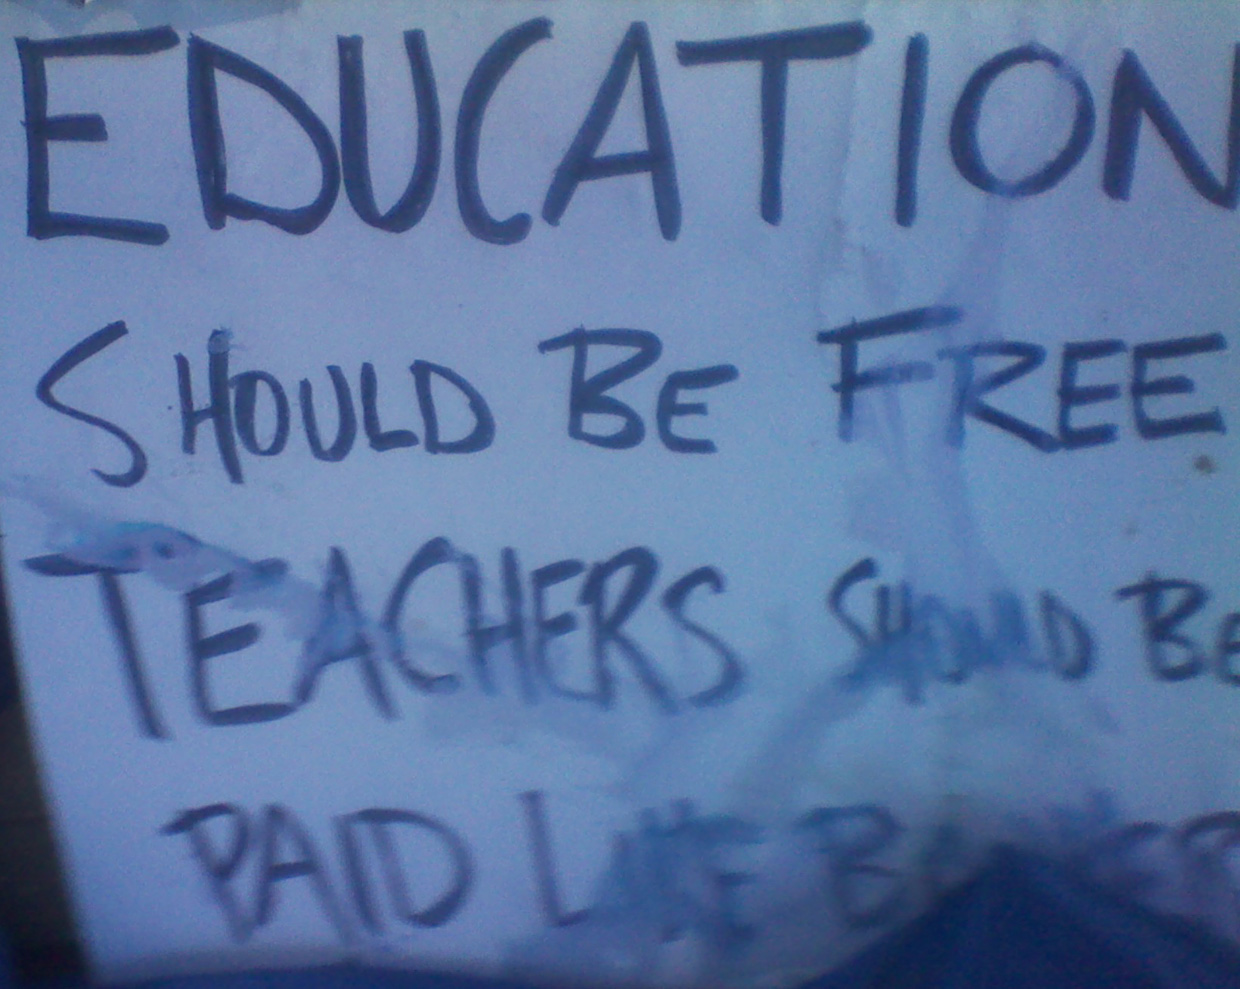 EDUCATION
SHOULD BE FREE
TEACHERS SHOULD BE
PAID LIKE